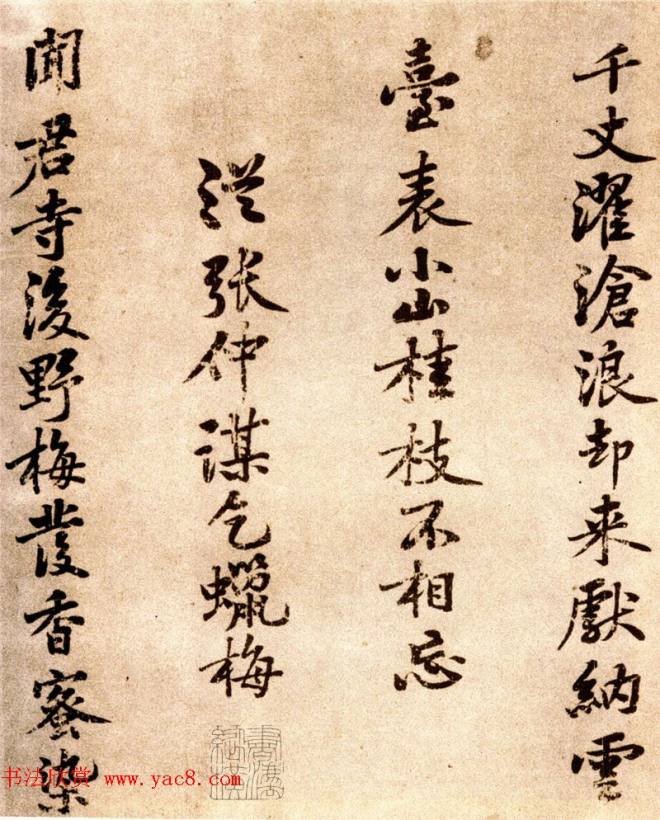 千丈濯滄浪却来獻納雲
臺表小山桂枝不相忘
従张仲謀乞蠟梅
聞君寺後野梅發香蜜染
书法欣赏 www.yac8.com